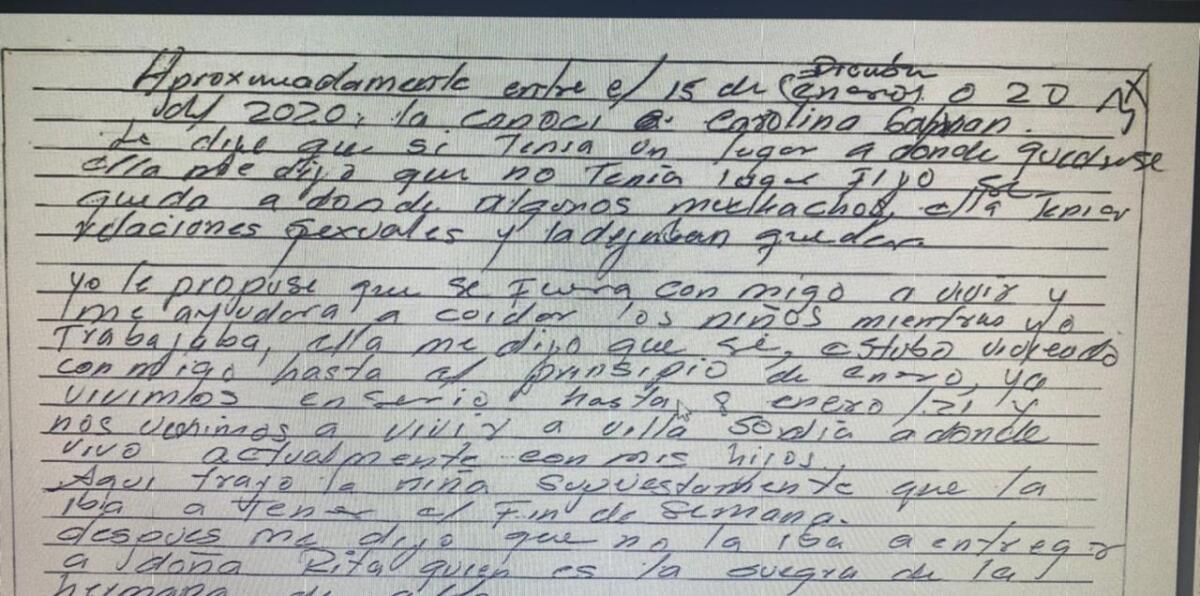 Diciembre
Aproximadamente entre el 15 de (enero) o 20
del 2020, la conoci a Carolina
Le dije que si Tenia un lugar a donde quedarse
ella me dijo que no Tenia lugar Fijo se
queda a donde algunos muchachos, ella Tenia
relaciones sexuales y la dejaban quedar.
yo le propuse que se Fuera con migo a vivir y
me ayudara a coidar los niños mientras yo
Trabajaba, ella me dijo que si, estubo
conmigo hasta el prinsipio de enero, ya
vivimos enserio hasta 8 enero /21 y
nos venimos a vivir a villa a donde
vivo actualmente con mis hijos.
Aqui trajo la niña supuestamente que la
iba a tener el Fin de semana.
despues me dijo que no la iba a entregar
a doña Rita quien es la suegra de la
hermana de